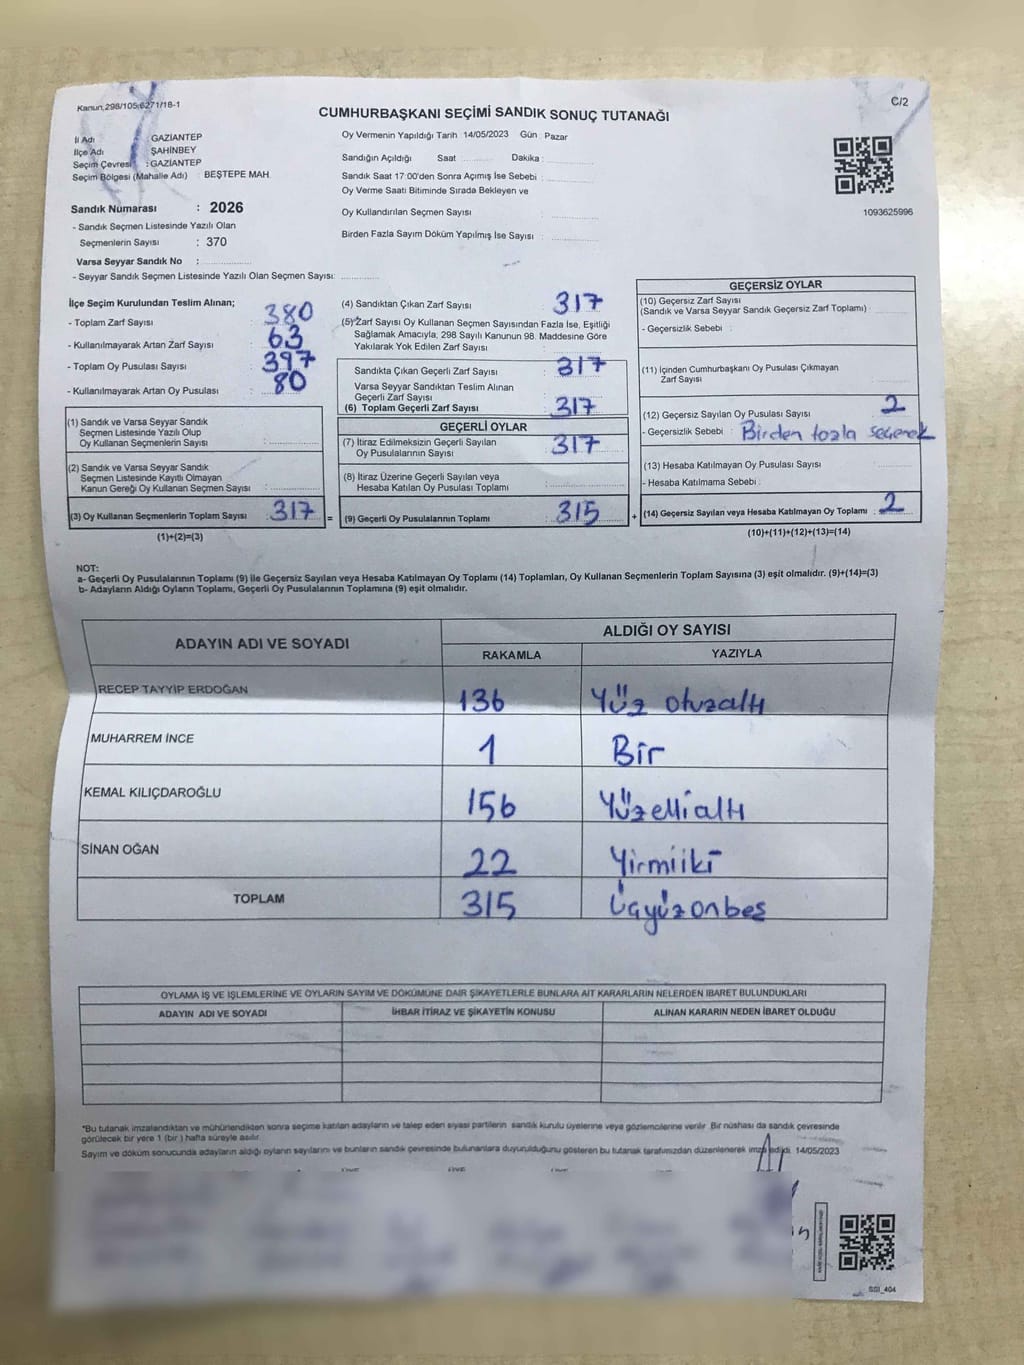 Kanun,298/105;6271/18-1
C/2
CUMHURBAŞKANI SEÇİMİ SANDIK SONUÇ TUTANAĞI
İl Adı : GAZİANTEP
İlçe Adı : ŞAHİNBEY
Seçim Çevresi : GAZİANTEP
Seçim Bölgesi (Mahalle Adı) : BEŞTEPE MAH.
Sandık Numarası : 2026
- Sandık Seçmen Listesinde Yazılı Olan
Seçmenlerin Sayısı : 370
Varsa Seyyar Sandık No :
- Seyyar Sandık Seçmen Listesinde Yazılı Olan Seçmen Sayısı:
Oy Vermenin Yapıldığı Tarih 14/05/2023 Gün Pazar
Sandığın Açıldığı Saat Dakika :
Sandık Saat 17:00'den Sonra Açımış İse Sebebi :
Oy Verme Saati Bitiminde Sırada Bekleyen ve
Oy Kullandırılan Seçmen Sayısı :
Birden Fazla Sayım Döküm Yapılmış İse Sayısı :
1093625996
İlçe Seçim Kurulundan Teslim Alınan;
- Toplam Zarf Sayısı : 380
- Kullanılmayarak Artan Zarf Sayısı : 63
- Toplam Oy Pusulası Sayısı : 397
- Kullanılmayarak Artan Oy Pusulası : 80
(1) Sandık ve Varsa Seyyar Sandık
Seçmen Listesinde Yazılı Olup
Oy Kullanan Seçmenlerin Sayısı :
(2) Sandık ve Varsa Seyyar Sandık
Seçmen Listesinde Kayıtlı Olmayan
Kanun Gereği Oy Kullanan Seçmen Sayısı :
(3) Oy Kullanan Seçmenlerin Toplam Sayısı : 317 =
(1)+(2)=(3)
(4) Sandıktan Çıkan Zarf Sayısı : 317
(5) Zarf Sayısı Oy Kullanan Seçmen Sayısından Fazla İse, Eşitliği
Sağlamak Amacıyla, 298 Sayılı Kanunun 98. Maddesine Göre
Yakılarak Yok Edilen Zarf Sayısı :
Sandıkta Çıkan Geçerli Zarf Sayısı : 317
Varsa Seyyar Sandıktan Teslim Alınan
Geçerli Zarf Sayısı :
(6) Toplam Geçerli Zarf Sayısı : 317
GEÇERLİ OYLAR
(7) İtiraz Edilmeksizin Geçerli Sayılan
Oy Pusulalarının Sayısı : 317
(8) İtiraz Üzerine Geçerli Sayılan veya
Hesaba Katılan Oy Pusulası Toplamı :
(9) Geçerli Oy Pusulalarının Toplamı : 315 +
GEÇERSİZ OYLAR
(10) Geçersiz Zarf Sayısı
(Sandık ve Varsa Seyyar Sandık Geçersiz Zarf Toplamı) :
- Geçersizlik Sebebi :
(11) İçinden Cumhurbaşkanı Oy Pusulası Çıkmayan
Zarf Sayısı :
(12) Geçersiz Sayılan Oy Pusulası Sayısı : 2
- Geçersizlik Sebebi : Birden fazla seçerek
(13) Hesaba Katılmayan Oy Pusulası Sayısı :
- Hesaba Katılmama Sebebi :
(14) Geçersiz Sayılan veya Hesaba Katılmayan Oy Toplamı : 2
(10)+(11)+(12)+(13)=(14)
NOT:
a- Geçerli Oy Pusulalarının Toplamı (9) ile Geçersiz Sayılan veya Hesaba Katılmayan Oy Toplamı (14) Toplamları, Oy Kullanan Seçmenlerin Toplam Sayısına (3) eşit olmalıdır. (9)+(14)=(3)
b- Adayların Aldığı Oyların Toplamı, Geçerli Oy Pusulalarının Toplamına (9) eşit olmalıdır.
ADAYIN ADI VE SOYADI
ALDIĞI OY SAYISI
RAKAMLA YAZIYLA
RECEP TAYYİP ERDOĞAN 136 Yüz otuzaltı
MUHARREM İNCE 1 Bir
KEMAL KILIÇDAROĞLU 156 Yüzelli altı
SİNAN OĞAN 22 Yirmiiki
TOPLAM 315 Üçyüzonbeş
OYLAMA İŞ VE İŞLEMLERİNE VE OYLARIN SAYIM VE DÖKÜMÜNE DAİR ŞİKAYETLERLE BUNLARA AİT KARARLARIN NELERDEN İBARET BULUNDUKLARI
ADAYIN ADI VE SOYADI İHBAR İTİRAZ VE ŞİKAYETİN KONUSU ALINAN KARARIN NEDEN İBARET OLDUĞU
*Bu tutanak imzalandıktan ve mühürlendikten sonra seçime katılan adayların ve talep eden siyasi partilerin sandık kurulu üyelerine veya gözlemcilerine verilir. Bir nüshası da sandık çevresinde
görülecek bir yere 1 (bir ) hafta süreyle asılır.
Sayım ve döküm sonucunda adayların aldığı oyların sayılarını ve bunların sandık çevresinde bulunanlara duyurulduğunu gösteren bu tutanak tarafımızdan düzenlenerek imza edildi. 14/05/2023
SSI_404